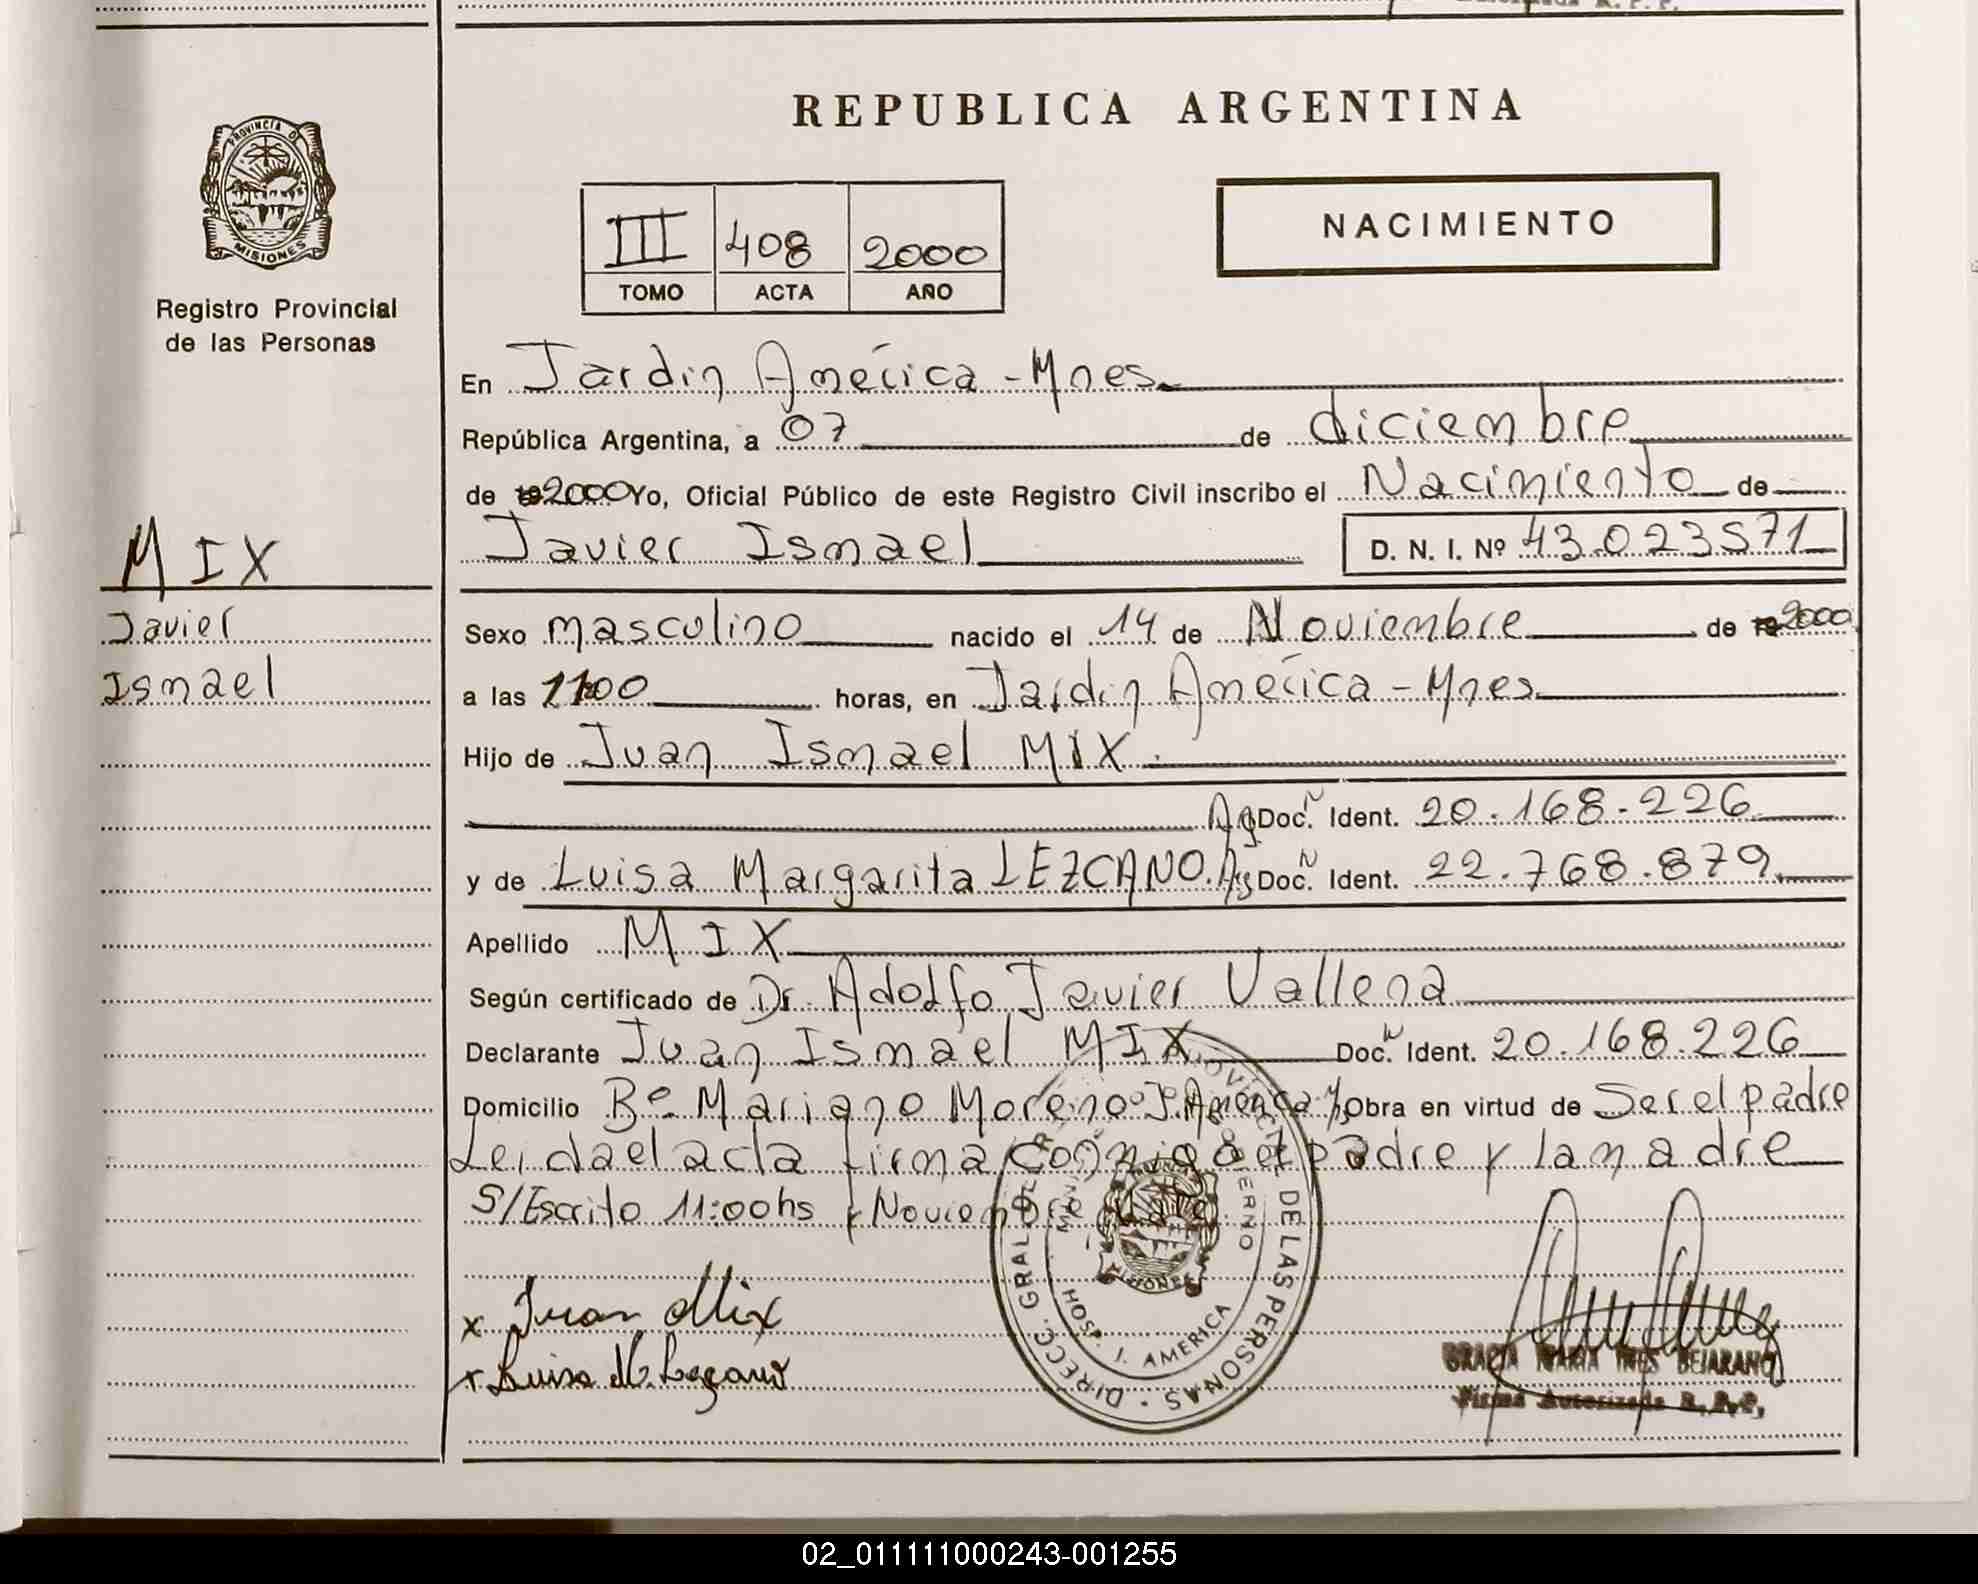 REPUBLICA ARGENTINA
PROVINCIA DE
MISIONES
Registro Provincial
de las Personas
III 408 2000
TOMO ACTA AÑO
NACIMIENTO
En Jardin América - Mnes
República Argentina, a 07 de diciembre
de 2000 Yo, Oficial Público de este Registro Civil inscribo el Nacimiento de
Javier Ismael D. N. I. Nº 43.023571
MIX
Javier
Ismael
Sexo masculino nacido el 14 de Noviembre de 2000
a las 1100 horas, en Jardin América - Mnes
Hijo de Juan Ismael MIX
Ag Doc. N Ident. 20.168.226
y de Luisa Margarita LEZCANO. Ag Doc. N Ident. 22.768.879
Apellido MIX
Según certificado de Dr. Adolfo Javier Vallena
Declarante Juan Ismael MIX Doc. N Ident. 20.168.226
Domicilio Bº Mariano Moreno J. América Obra en virtud de Ser el padre
Leida el acta firma conmigo el padre y la madre
S/Escrito 11:00hs y Noviembre
x Juan Mix
x Luisa M. Lezcano
DIRECC. GRAL. DE LAS PERSONAS
HOSP. J. AMERICA
MISIONES
GRACIA MARIA INES BEJARANO
Firma Autorizada R. P. P.
02_011111000243-001255